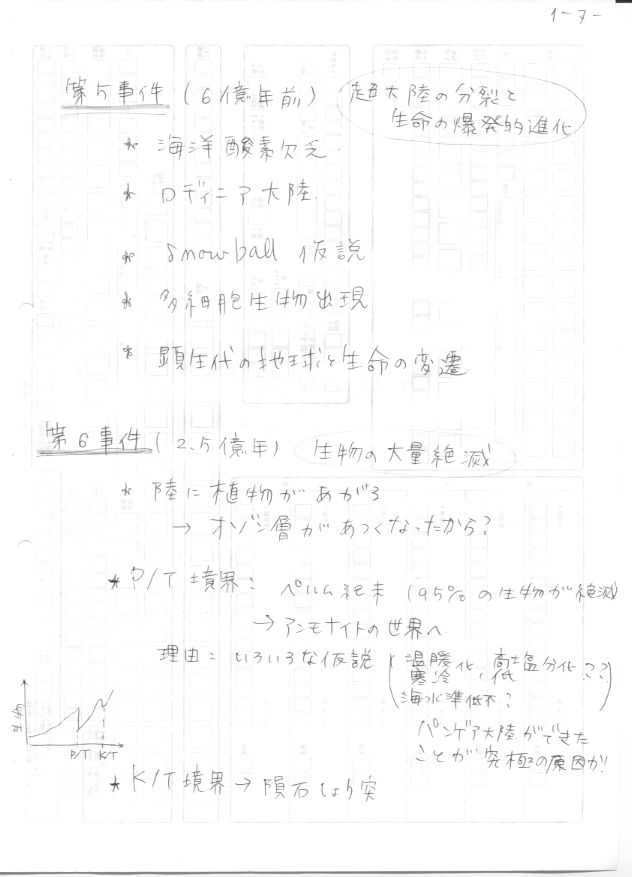 1-7-
第5事件 (6億年前) 超大陸の分裂と
生命の爆発的進化
* 海洋酸素欠乏
* ロディニア大陸
* Snowball 仮説
* 多細胞生物出現
* 顕生代の地球と生命の変遷
第6事件 (2.5億年) 生物の大量絶滅
* 陸に植物があがる
→ オゾン層があつくなったから?
* P/T境界: ペルム紀末 (95%の生物が絶滅
→ アンモナイトの世界へ
理由: いろいろな仮説 (温暖化, 高塩分化??)
寒冷, 低
海水準低下?
パンゲア大陸ができた
ことが究極の原因か!
生物
P/T K/T
* K/T境界 → 隕石しょう突